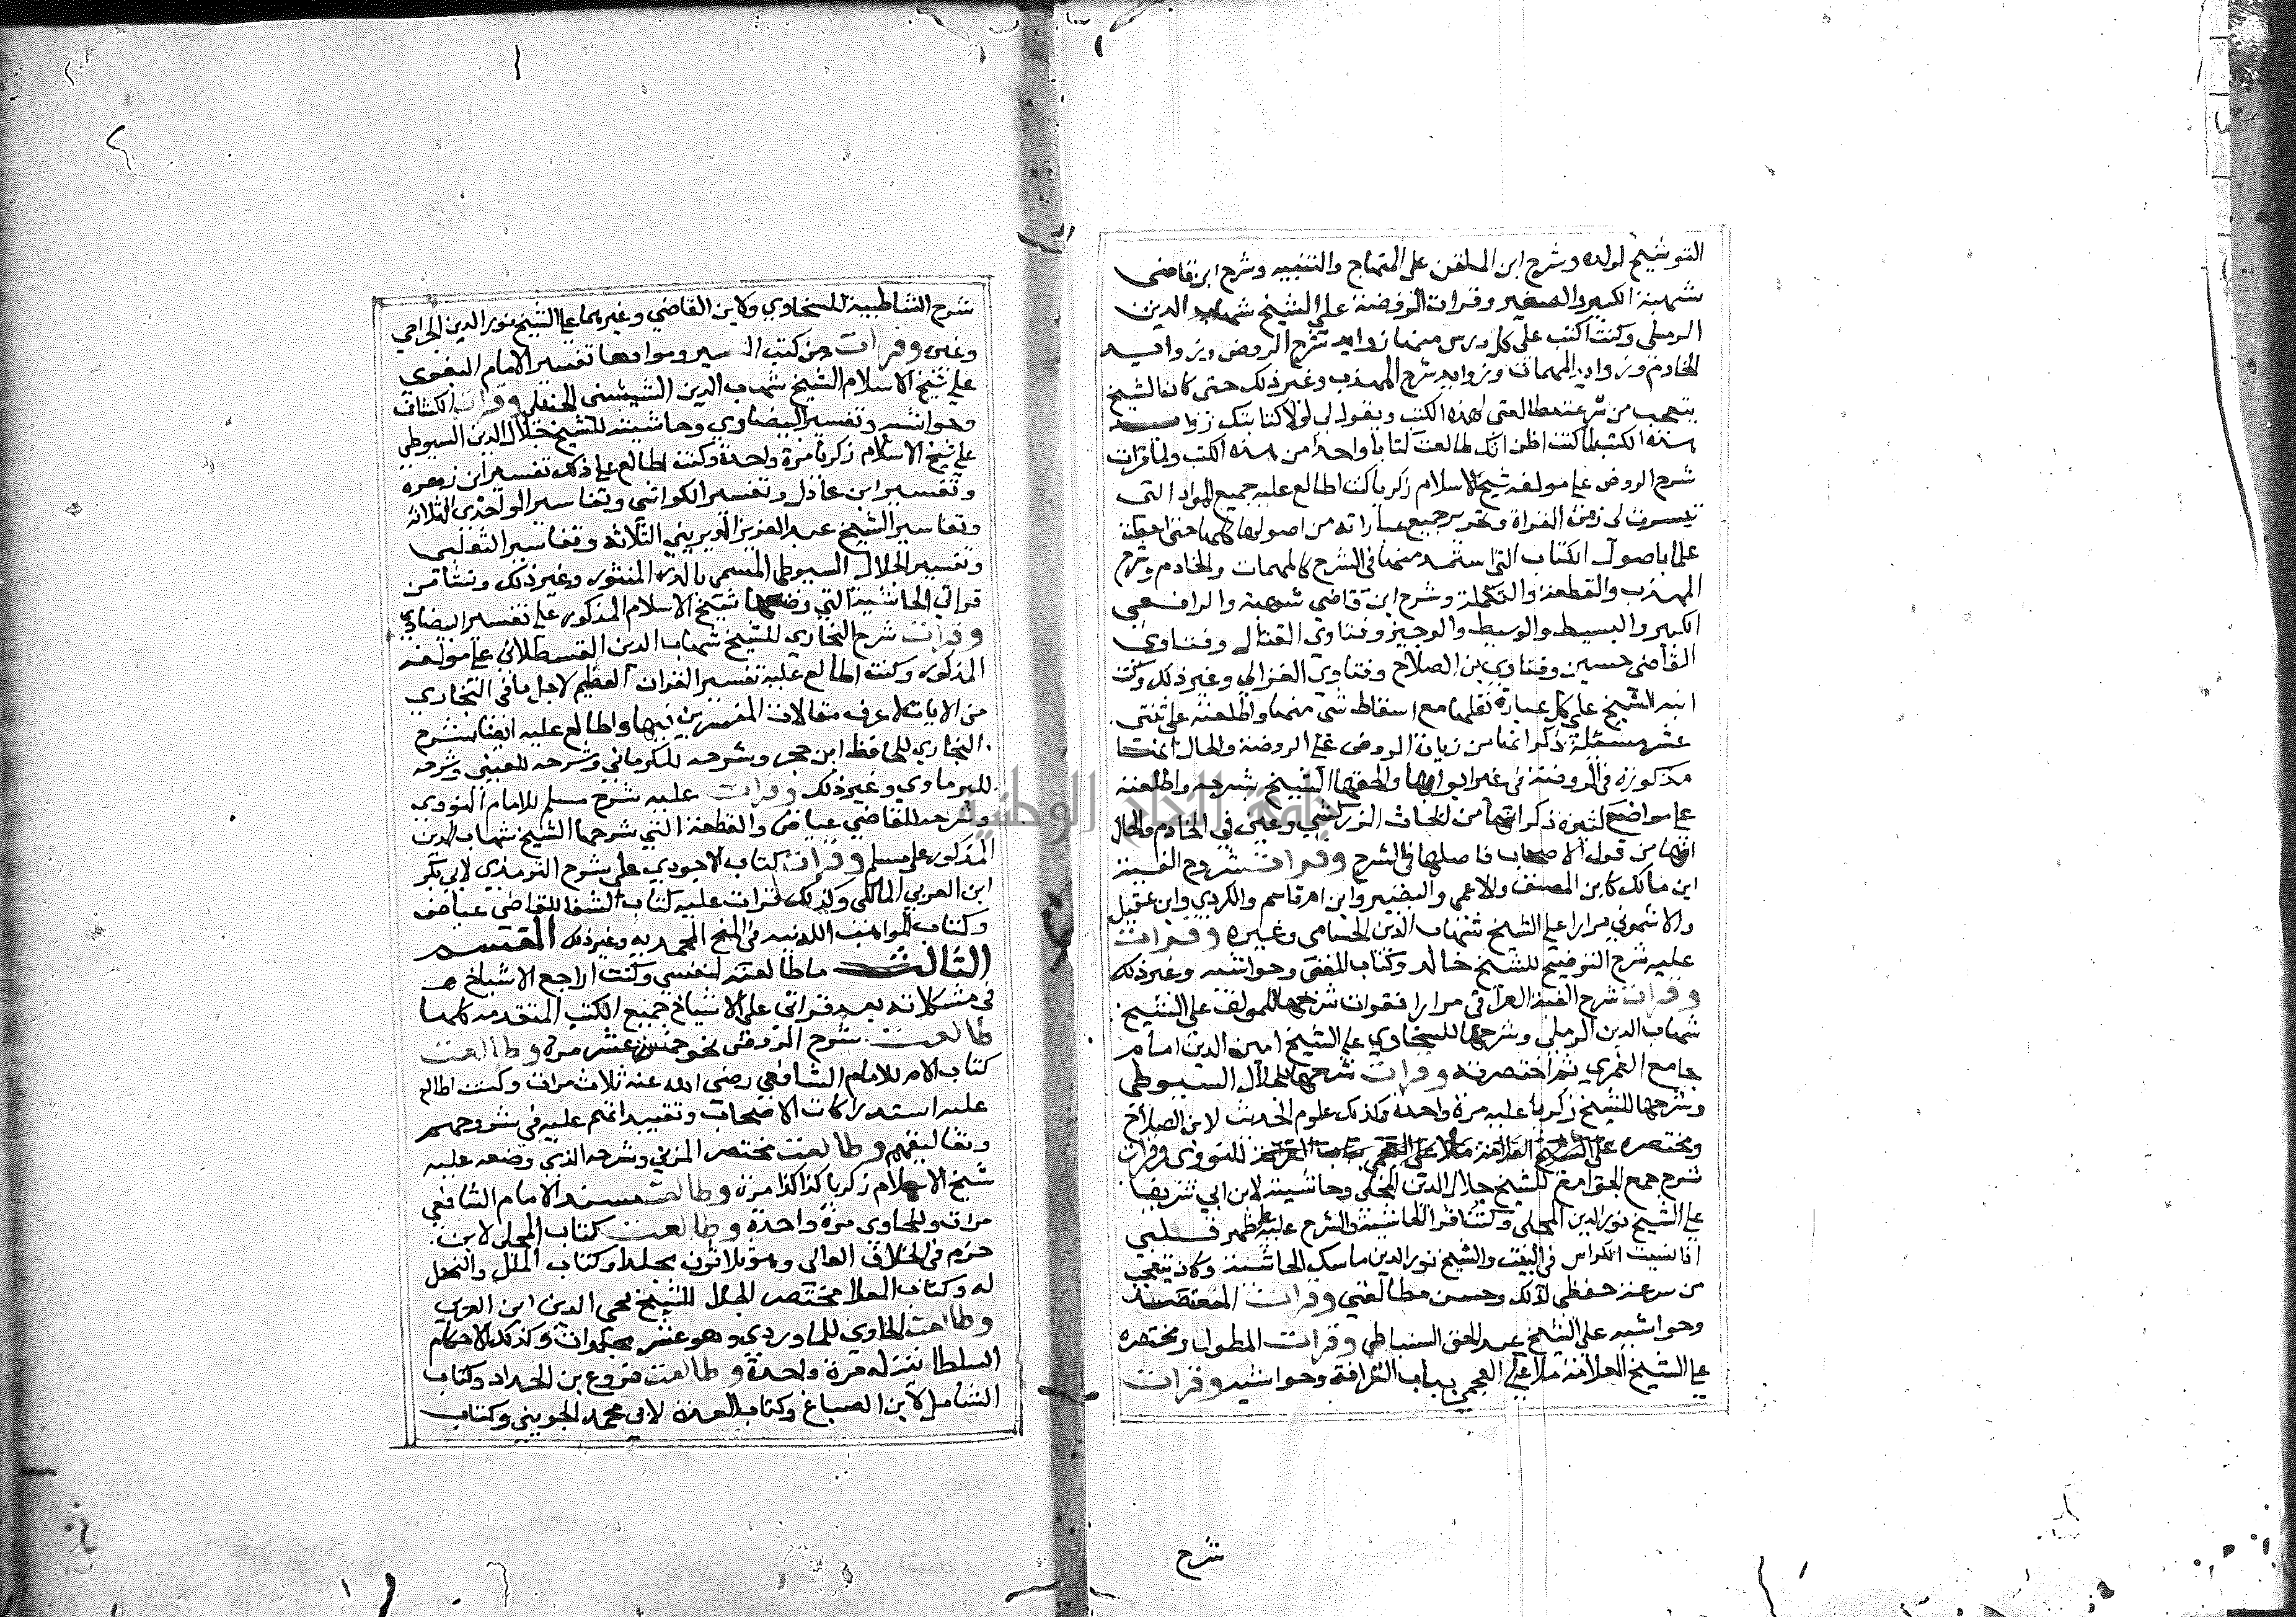 التوشيح لولده وشرح ابن الملقن على المنهاج والتنبيه وشرح ابن قاضي
شهبة الكبير والصغير وقرات الروضة على الشيخ شهاب الدين
الرملى وكنت اكتب على كل درس منها زوايد شرح الروض وزوايد
الخادم وزوايد المهمات وزوايد شرح المهذب وغير ذلك حتى كان الشيخ
يتعجب من سرعة مطالعتى لهذه الكتب ويقول لى لولا كتابتك زوايد
هذه الكتب لما كنت اظن انك طالعت كتابا واحدا من هذه الكتب ولما قرات
شرح الروض على مولفه شيخ الاسلام زكريا كنت اطالع عليه جميع المواد التى
تيسرت لى زمن القراة وتحرير جميع عباراته من اصولها كلها حتى احطت
علما باصول الكتاب التى استمد منها فى الشرح كالمهمات والخادم وشرح
المهذب والقطعة والتكملة وشرح ابن قاضي شهبة والرافعي
الكبير والبسيط والوسيط والوجيز وفتاوي القفال وفتاوي
القاضى حسين وفتاوي بن الصلاح وفتاوي الغزالى وغير ذلك وكنت
انبه الشيخ على كل عبارة نقلها مع اسقاط شى منها واطلعته على ثنتى
عشر مسئلة ذكر انها من زيادة الروض على الروضة والحال انها
مذكورة فى الروضة فى غير ابوابها والحقها الشيخ بشرحه واطلعته
على مواضع كثيرة ذكر انها من ابحاث الزركشي وغيره فى الخادم والحال
انها من قول الاصحاب فاصلحها فى الشرح وقرات شروح الفية
ابن مالك كابن المصنف والاعمى والبصير وابن ام قاسم والكردي وابن عقيل
والاشمونى مرارا على الشيخ شهاب الدين الحسامى وغيره وقرات
عليه شرح التوضيح للشيخ خالد وكتاب المغنى وحواشيه وغير ذلك
وقرات شرح الفية العراقى مرارا فقرات شرحها للمولف على الشيخ
شهاب الدين الرملى وشرحها للسخاوي على الشيخ امين الدين امام
جامع الغمري ثم اختصرته وقرات شرحها للجلال السيوطى
وشرحها للشيخ زكريا عليه مرة واحدة وكذلك علوم الحديث لابن الصلاح
ومختصره للنووى وقرات
شرح جمع الجوامع للشيخ جلال الدين المحلى وحاشيته لابن ابي شريف
على الشيخ نور الدين المحلى وكنت اقرا الحاشية والشرح عليه على ظهر قلبي
اذا نسيت الكراس فى البيت والشيخ نور الدين ماسك الحاشية وكان يتعجب
من سرعة حفظى لذلك وحسن مطالعتي وقرات العضد
وحواشيه على الشيخ عبد الحق السنباطى وقرات المطول ومختصره
على الشيخ العلامة ملا على العجمي بباب القرافة وحواشيه وقرات
شرح
شرح الشاطبية للسخاوي ولابن القاضي وغيرهما على الشيخ نور الدين الجارحي
وغيره وقرات من كتب التفسير وموادها تفسير الامام البغوي
على شيخ الاسلام الشيخ شهاب الدين الشيشنى الحنبلى وقرات الكشاف
وحواشيه وتفسير البيضاوي وحاشيته للشيخ جلال الدين السيوطى
على شيخ الاسلام زكريا مرة واحدة وكنت اطالع على ذلك تفسير ابن زهره
وتفسير ابن عادل وتفسير الكواشى وتفاسير الواحدى الثلاثة
وتفاسير الشيخ عبد العزيز الديريني الثلاثه وتفاسير الثعلبي
وتفسير الجلال السيوطى المسمى بالدر المنثور وغير ذلك ونشا من
قراتى الحاشية التي وضعها شيخ الاسلام المذكور على تفسير البيضاوي
وقرات شرح البخاري للشيخ شهاب الدين القسطلانى على مولفه
المذكور وكنت اطالع عليه تفسير القران العظيم لاجل ما فى البخاري
من الايات لاعرف مقالات المفسرين فيها واطالع عليه ايضا شرح
البخاري للحافظ ابن حجر وشرحه للكرمانى وشرحه للعينى وشرحه
للبرماوي وغير ذلك وقرات عليه شرح مسلم للامام النووي
وشرحه للقاضي عياض والقطعة التي شرحها الشيخ شهاب الدين
المذكور على مسلم وقرات كتاب الاحوذي على شرح الترمذي لابى بكر
ابن العربي المالكى وكذلك قرات عليه كتاب الشفا للقاضى عياض
وكتاب المواهب اللدنيه فى المنح المحمديه وغير ذلك القسم
الثالث ما طالعته لنفسي وكنت اراجع الاشياخ
فى مشكلاته بعد قراتى على الاشياخ جميع الكتب المتقدمه كلها
طالعت شرح الروض نحو خمس عشر مرة وطالعت
كتاب الام للامام الشافعي رضى الله عنه ثلاث مرات وكنت اطالع
عليه استدراكات الاصحاب وتقييداتهم عليه فى شروحهم
وتعاليقهم وطالعت مختصر المزني وشرحه الذي وضعه عليه
شيخ الاسلام زكريا كذا كذا مرة وطالعت مسند الامام الشافعى
مرات وللحاوي مرة واحدة وطالعت كتاب المحلى لابن
حزم فى الخلاف العالى وهو ثلاثون مجلدا وكتاب الملل والنحل
له وكتاب المعلا مختصر المحلى للشيخ محى الدين ابن العربي
وطالعت الحاوي للماوردي وهو عشر مجلدات وكذلك الاحكام
السلطانية له مرة واحدة وطالعت فروع بن الحداد وكتاب
الشامل لابن الصباغ وكتاب العدة لابى محمد الجويني وكتاب
جامعة النجاح الوطنية